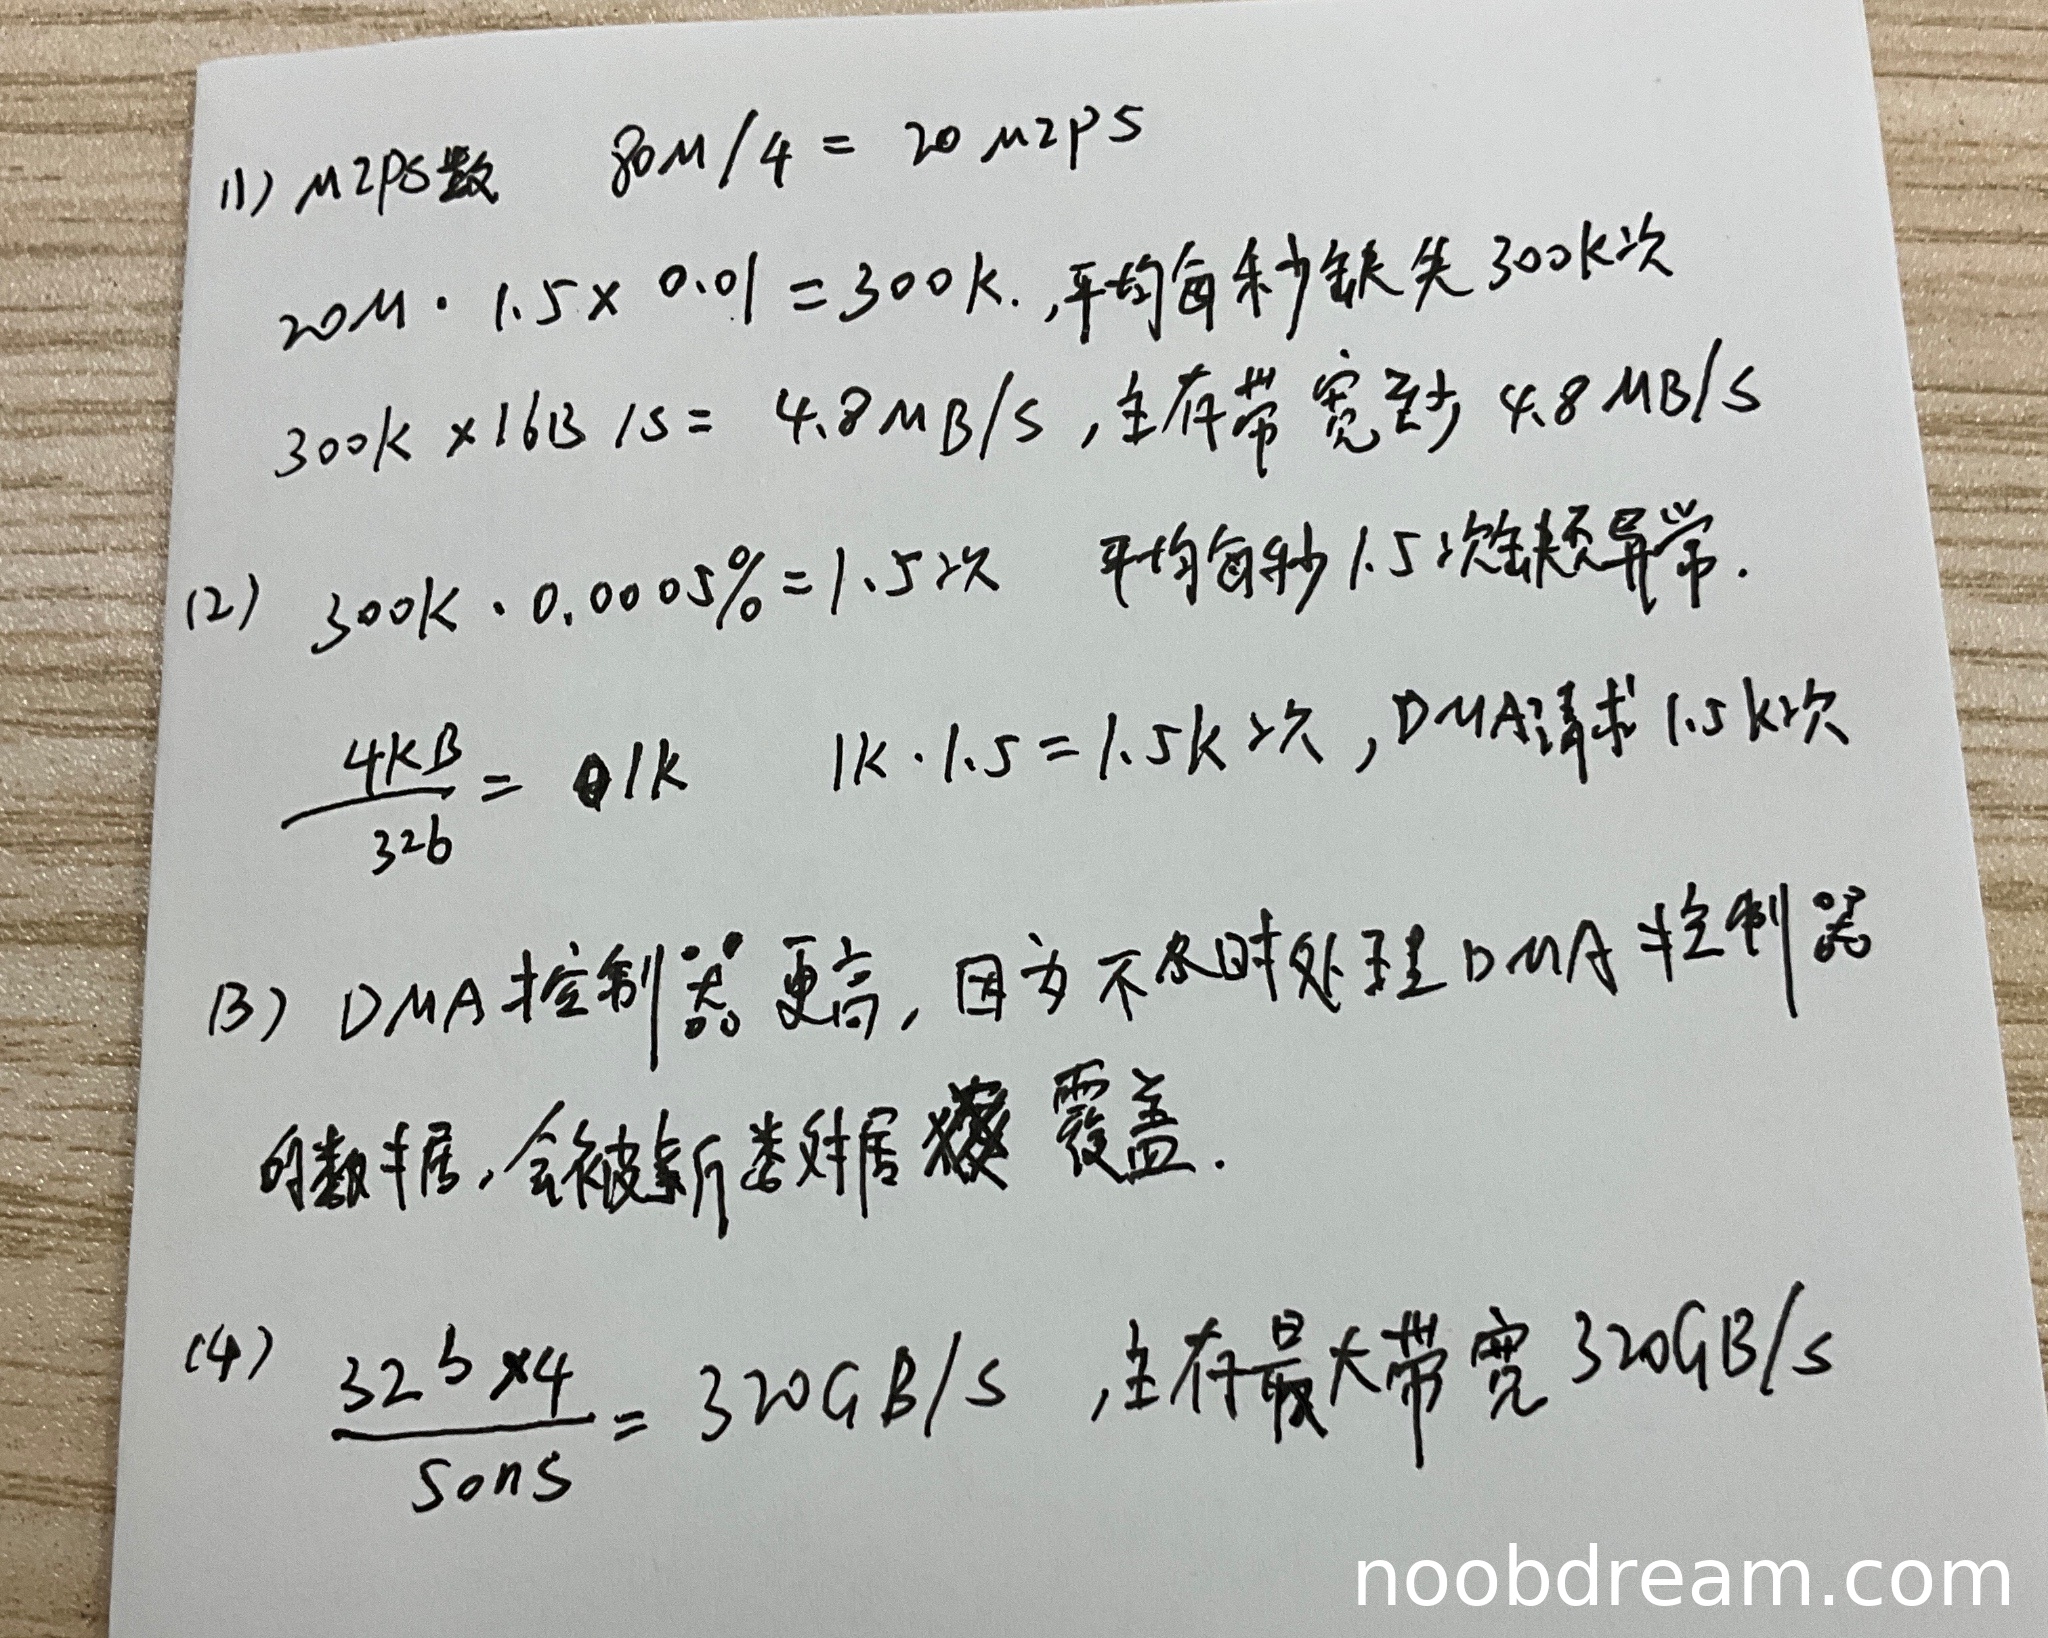 (1) MIPS数 80M/4 = 20 MIPS
20M · 1.5 × 0.01 = 300K. ,平均每秒缺失300K次
300K ×16B /S = 4.8MB/S ,主存带宽至少 4.8MB/S
(2) 300K · 0.0005% = 1.5次 平均每秒1.5次缺页异常.
4KB/32b = 1K 1K · 1.5 = 1.5K次 ,DMA请求1.5K次
(3) DMA控制器更高, 因为不及时处理DMA控制器
的数据,会被新数据覆盖.
(4) 32b ×4/50ns = 320GB/S ,主存最大带宽320GB/S
noobdream.com